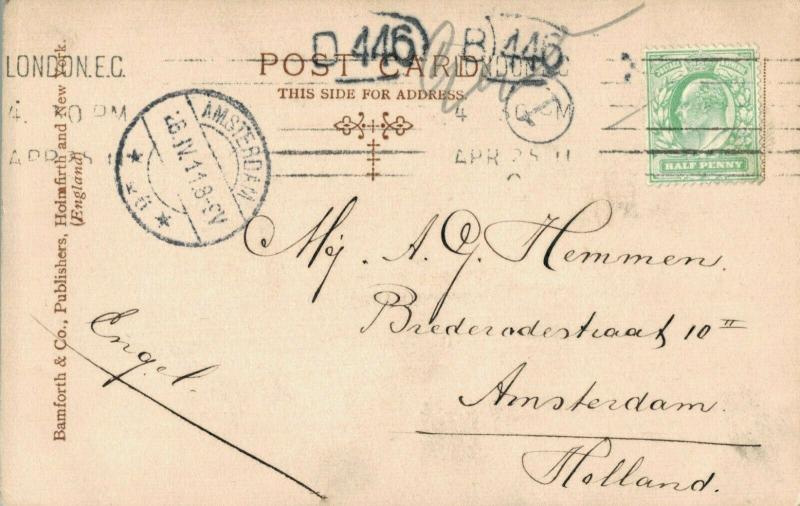 D 446
B 446
LONDON.E.C.
POST CARD
NDON.E.C
THIS SIDE FOR ADDRESS
4. 30 PM
4 30 PM
APR 25 11
APR 25 11
T
HALF PENNY
AMSTERDAM
26.IV.11.8-9V
Bamforth & Co., Publishers, Holmfirth and New York.
(England)
Mej. A. G. Hemmen.
Brederodestraat 10 II
Amsterdam.
Holland.
Engel.